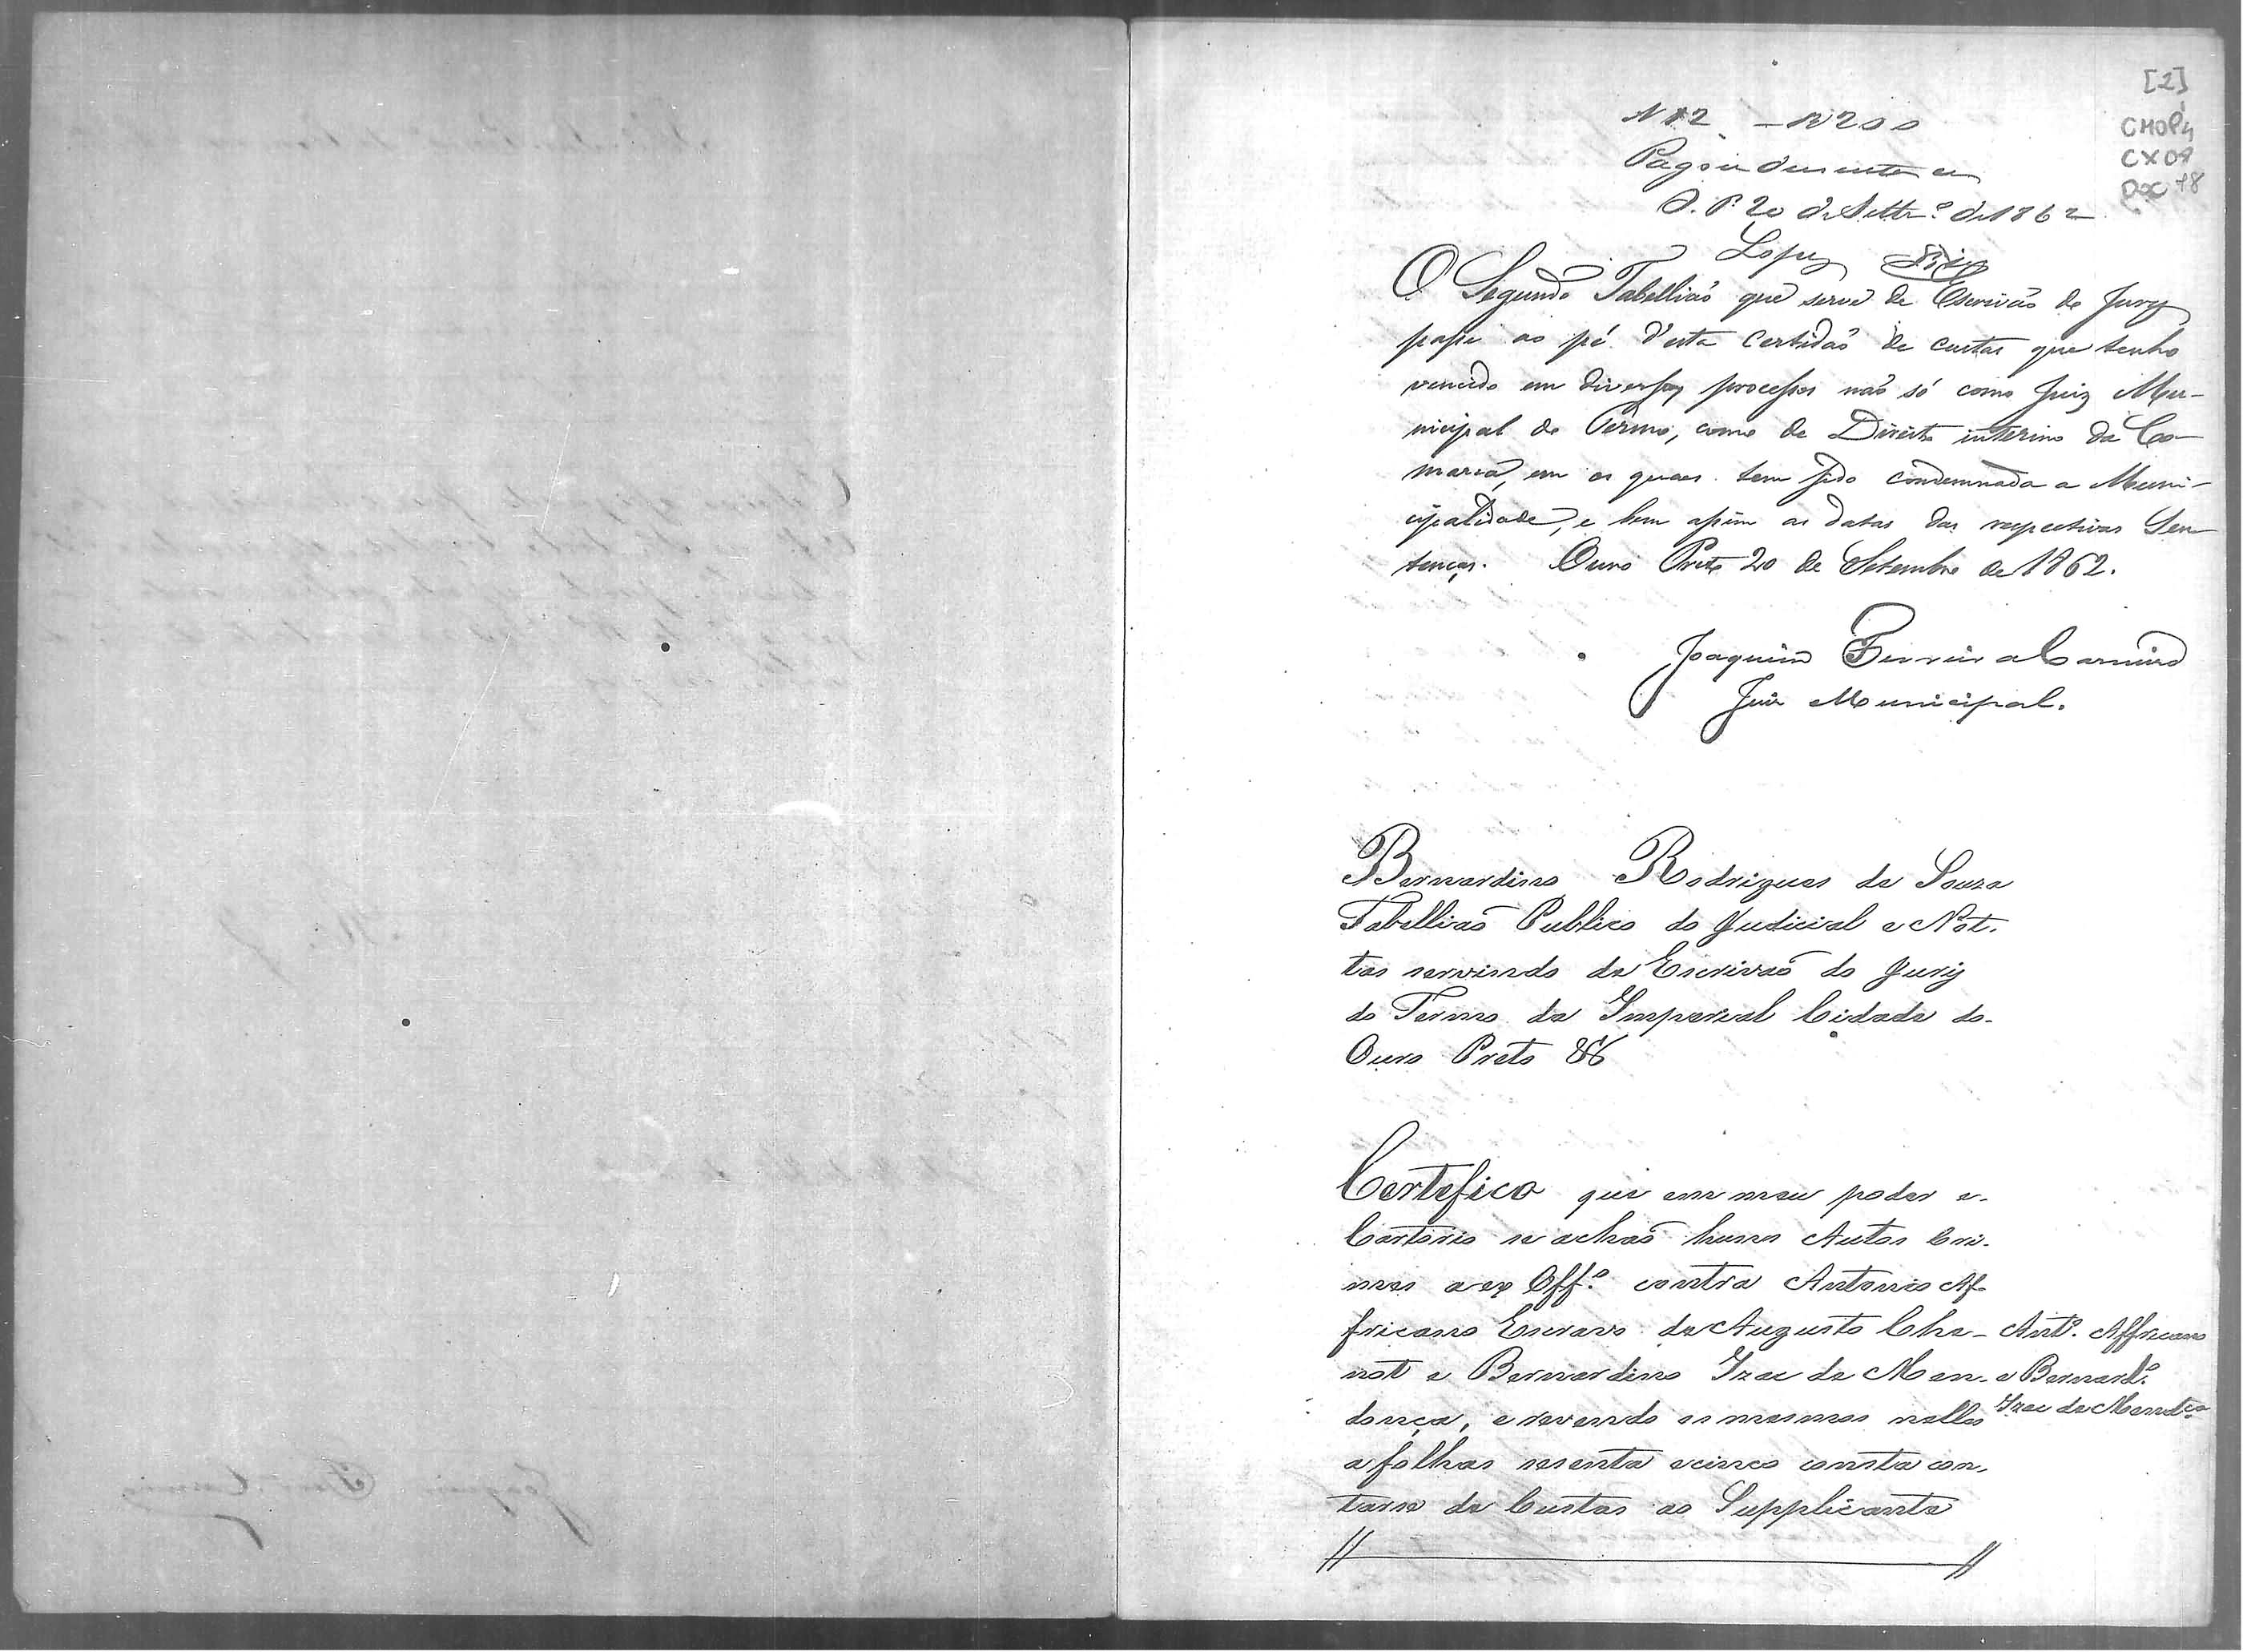 [2]
CMOP
CX 08
DOC 48
N 12 — R 200
Pagou duzentos reis
O. P. 20 de Settr.º de 1862
Lopes
O Segundo Tabellião que serve de Escrivão do Jury
passe ao pé d'esta certidão de custas que tenho
vencido em diversos processos não só como Juiz Mu-
nicipal do Termo, como de Direito interino da Co-
marca, em os quaes tem sido condemnada a Muni-
cipalidade, e bem assim as datas das respectivas Sen-
tenças. Ouro Preto 20 de Setembro de 1862.
Joaquim Ferreira Carneiro
Juiz Municipal.
Bernardino Rodrigues de Souza
Tabellião Publico do Judicial e Not-
tas servindo de Escrivão do Jury
do Termo da Imperial Cidade do
Ouro Preto &&
Certefico que em meu poder e
Cartorio se achão huns Autos Cri-
mes a ex Off.º contra Antonio Af-
fricano Escravo de Augusto Cha-
not e Bernardino Izac de Men-
donça, e revendo os mesmos nelles
a folhas secenta e cinco consta con-
tarse de Custas ao Supplicante
Ant.º Affricano
e Bernard.º
Izac de Mendça